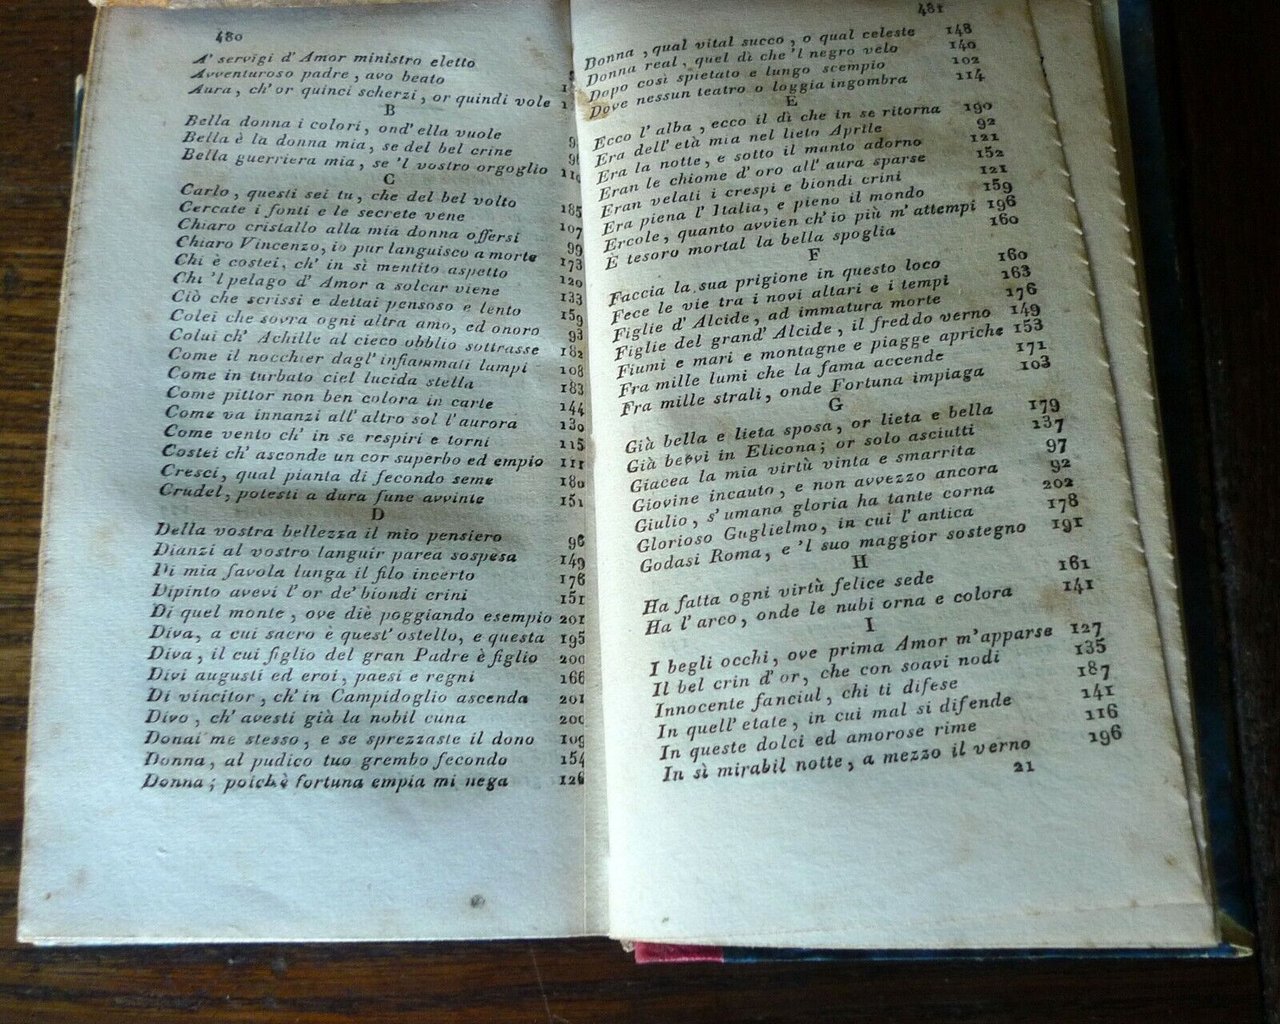 480
A' servigi d' Amor ministro eletto
Avventuroso padre, avo beato
Aura, ch' or quinci scherzi, or quindi vole
B
Bella donna i colori, ond' ella vuole
Bella è la donna mia, se del bel crine
Bella guerriera mia, se 'l vostro orgoglio
C
Carlo, questi sei tu, che del bel volto 185
Cercate i fonti e le secrete vene 107
Chiaro cristallo alla mia donna offersi 99
Chiaro Vincenzo, io pur languisco a morte 173
Chi è costei, ch' in sì mentito aspetto 120
Chi 'l pelago d' Amor a solcar viene 133
Ciò che scrissi e dettai pensoso e lento 159
Colei che sovra ogni altra amo, ed onoro 93
Colui ch' Achille al cieco obblio sottrasse 182
Come il nocchier dagl' infiammati lampi 108
Come in turbato ciel lucida stella 183
Come pittor non ben colora in carte 144
Come va innanzi all' altro sol l' aurora 130
Come vento ch' in se respiri e torni 115
Costei ch' asconde un cor superbo ed empio 111
Cresci, qual pianta di fecondo seme 180
Crudel, potesti a dura fune avvinte 151
D
Della vostra bellezza il mio pensiero
Dianzi al vostro languir parea sospesa 149
Di mia favola lunga il filo incerto 176
Dipinto avevi l' or de' biondi crini 151
Di quel monte, ove diè poggiando esempio 201
Diva, a cui sacro è quest' ostello, e questa 195
Diva, il cui figlio del gran Padre è figlio 200
Divi augusti ed eroi, paesi e regni 166
Di vincitor, ch' in Campidoglio ascenda 201
Divo, ch' avesti già la nobil cuna 200
Donai me stesso, e se sprezzaste il dono 109
Donna, al pudico tuo grembo fecondo 154
Donna; poichè fortuna empia mi nega 126
481
Donna, qual vital succo, o qual celeste 148
Donna real, quel dì che 'l negro velo 140
Dopo così spietato e lungo scempio 102
Dove nessun teatro o loggia ingombra 114
E
Ecco l' alba, ecco il dì che in se ritorna 190
Era dell' età mia nel lieto Aprile 92
Era la notte, e sotto il manto adorno 121
Eran le chiome d' oro all' aura sparse 152
Eran velati i crespi e biondi crini 121
Era piena l' Italia, e pieno il mondo 159
Ercole, quanto avvien ch' io più m' attempi 196
È tesoro mortal la bella spoglia 160
F
Faccia la sua prigione in questo loco 160
Fece le vie tra i novi altari e i tempi 163
Figlie d' Alcide, ad immatura morte 176
Figlie del grand' Alcide, il freddo verno 149
Fiumi e mari e montagne e piagge apriche 153
Fra mille lumi che la fama accende 171
Fra mille strali, onde Fortuna impiaga 103
G
Già bella e lieta sposa, or lieta e bella 179
Già bevvi in Elicona; or solo asciutti 137
Giacea la mia virtù vinta e smarrita 97
Giovine incauto, e non avvezzo ancora 92
Giulio, s' umana gloria ha tante corna 202
Glorioso Guglielmo, in cui l' antica 178
Godasi Roma, e 'l suo maggior sostegno 191
H
Ha fatta ogni virtù felice sede 161
Ha l' arco, onde le nubi orna e colora 141
I
I begli occhi, ove prima Amor m' apparse 127
Il bel crin d' or, che con soavi nodi 135
Innocente fanciul, chi ti difese 187
In quell' etate, in cui mal si difende 141
In queste dolci ed amorose rime 116
In sì mirabil notte, a mezzo il verno 196
21